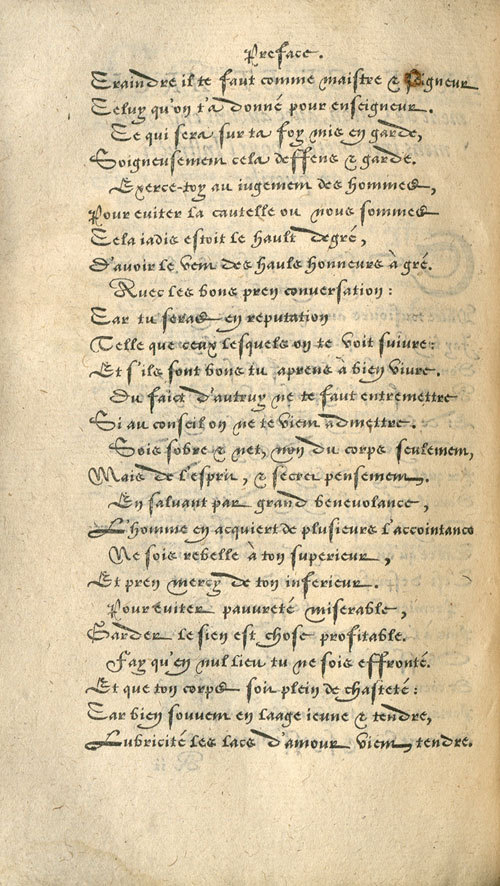 Preface.
Craindre il te faut comme maistre & seigneur
Celuy qu'on t'a donné pour enseigneur.
Ce qui sera sur ta foy mis en garde,
Soigneusement cela deffens & garde.
Exerce-toy au iugement des hommes,
Pour euiter la cautelle ou nous sommes
Cela iadis estoit le hault degré,
D'auoir le vent des hauls honneurs à gré.
Auec les bons pren conversation:
Car tu seras en reputation
Telle que ceux lesquels on te voit suiure:
Et s'ils sont bons tu aprens à bien viure.
Du faict d'autruy ne te faut entremettre
Si au conseil on ne te vient admettre.
Sois sobre & net, non du corps seulement,
Mais de l'esprit, & secret pensement.
En saluant par grand beneuolance,
L'homme en acquiert de plusieurs l'accointance
Ne sois rebelle à ton superieur,
Et pren mercy de ton inferieur.
Pour éuiter pauureté miserable,
Garder le sien est chose profitable.
Fay qu'en nul lieu tu ne sois effronté.
Et que ton corps soit plein de chasteté:
Car bien souuent en laage ieune & tendre,
Lubricité les lacs d'amour vient tendre.